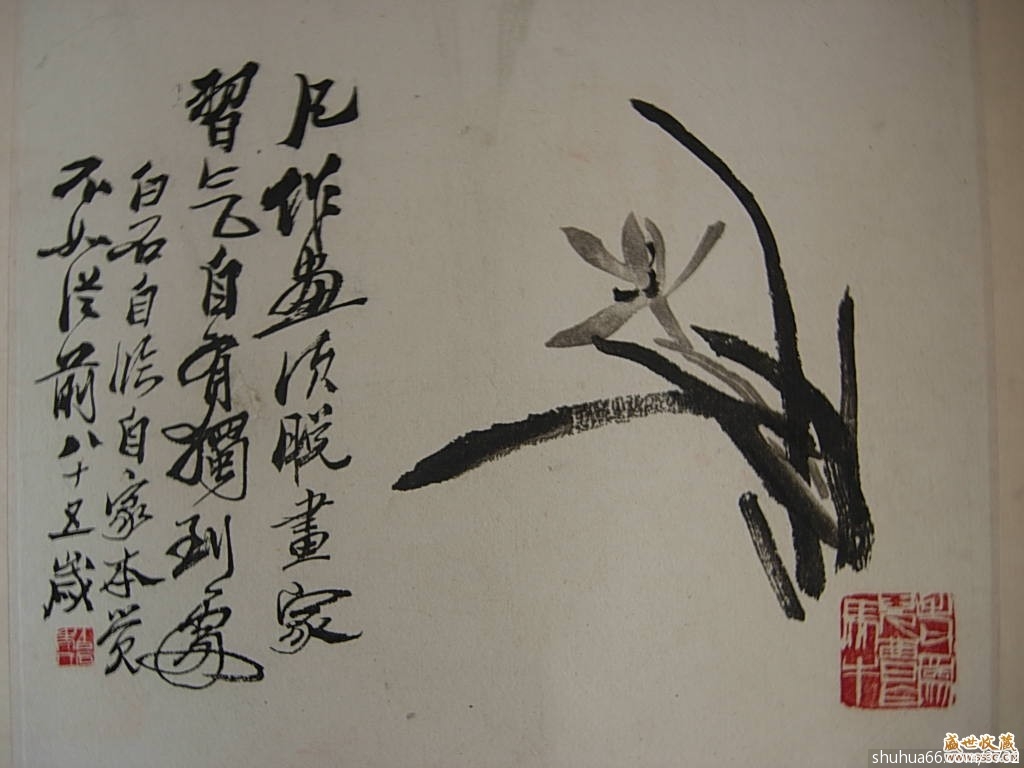 凡作畫須脫畫家
習气自有獨到處
白石自臨自家本覺
不如從前八十五歲
盛世收藏